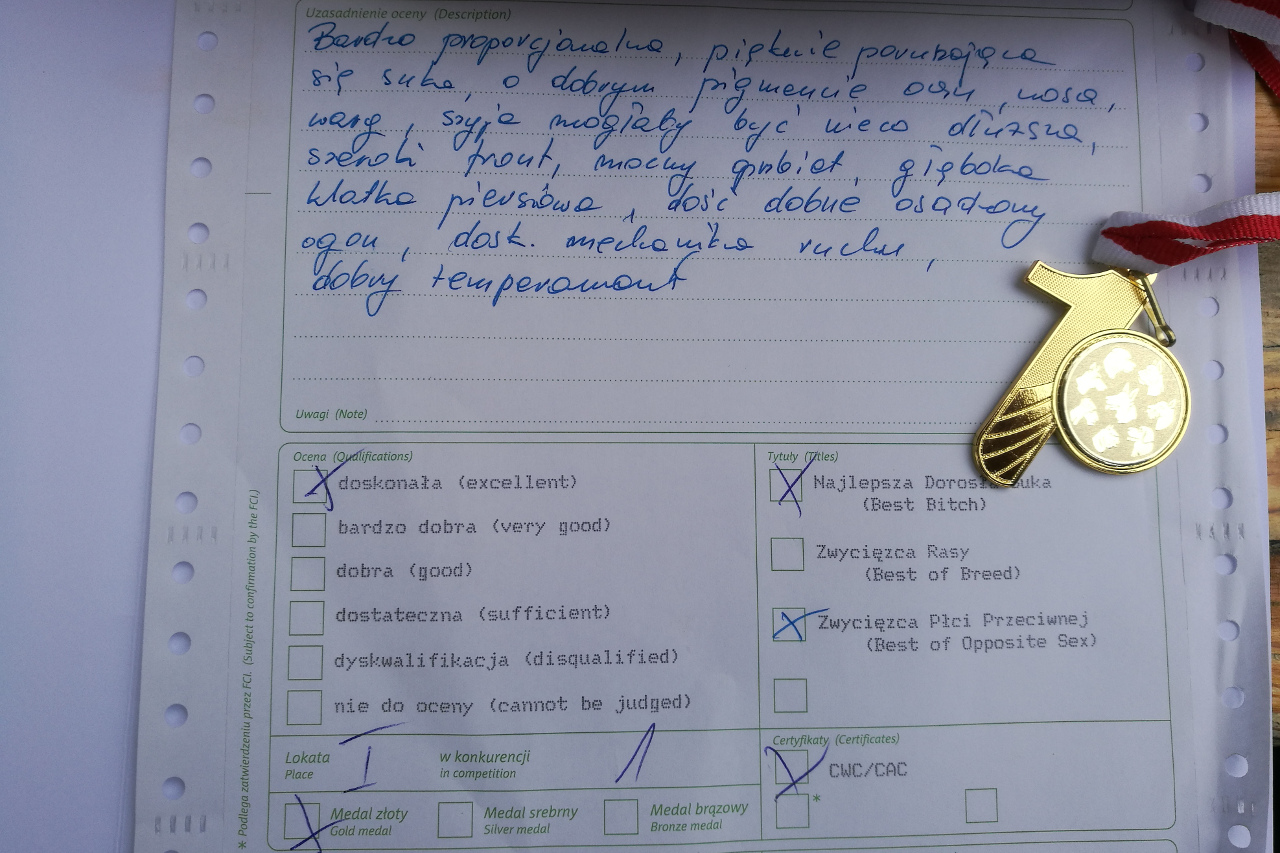 Uzasadnienie oceny (Description)
Bardzo proporcjonalna, pięknie poruszająca
się suka, o dobrym pigmencie oczu, nosa,
warg, szyja mogłaby być nieco dłuższa,
szeroki front, mocny grzbiet, głęboka
klatka piersiowa, dość dobrze osadzony
ogon, dosk. mechanika ruchu,
dobry temperament
Uwagi (Note)
Ocena (Qualifications)
X doskonała (excellent)
bardzo dobra (very good)
dobra (good)
dostateczna (sufficient)
dyskwalifikacja (disqualified)
nie do oceny (cannot be judged)
Tytuły (Titles)
X Najlepsza Dorosła Suka
(Best Bitch)
Zwycięzca Rasy
(Best of Breed)
X Zwycięzca Płci Przeciwnej
(Best of Opposite Sex)
Lokata I w konkurencji 1
Place in competition
X Medal złoty Medal srebrny Medal brązowy
Gold medal Silver medal Bronze medal
Certyfikaty (Certificates)
X CWC/CAC
*
* Podlega zatwierdzeniu przez FCI. (Subject to confirmation by the FCI.)